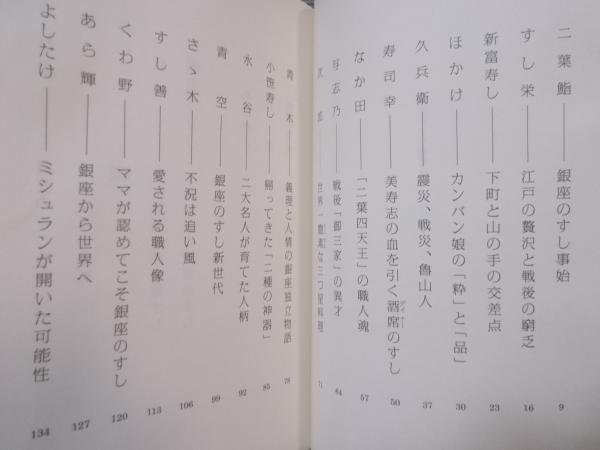 二葉鮨――銀座のすし事始 9
すし栄――江戸の贅沢と戦後の窮乏 16
新富寿し――下町と山の手の交差点 23
ほかけ――カンバン娘の「粋」と「品」 30
久兵衛――震災、戦災、魯山人 37
寿司幸――美寿志の血を引く酒席のすし 50
なか田――「二葉四天王」の職人魂 57
与志乃――戦後「御三家」の異才 64
郎――世界一 な三つ星料理 71
青木――義理と人情の銀座独立物語 78
小笹寿し――帰ってきた「二種の神器」 85
水谷――二大名人が育てた人柄 92
青空――銀座のすし新世代 99
さゝ木――不況は追い風 106
すし善――愛される職人像 113
くわ野――ママが認めてこそ銀座のすし 120
あら輝――銀座から世界へ 127
よしたけ――ミシュランが開いた可能性 134